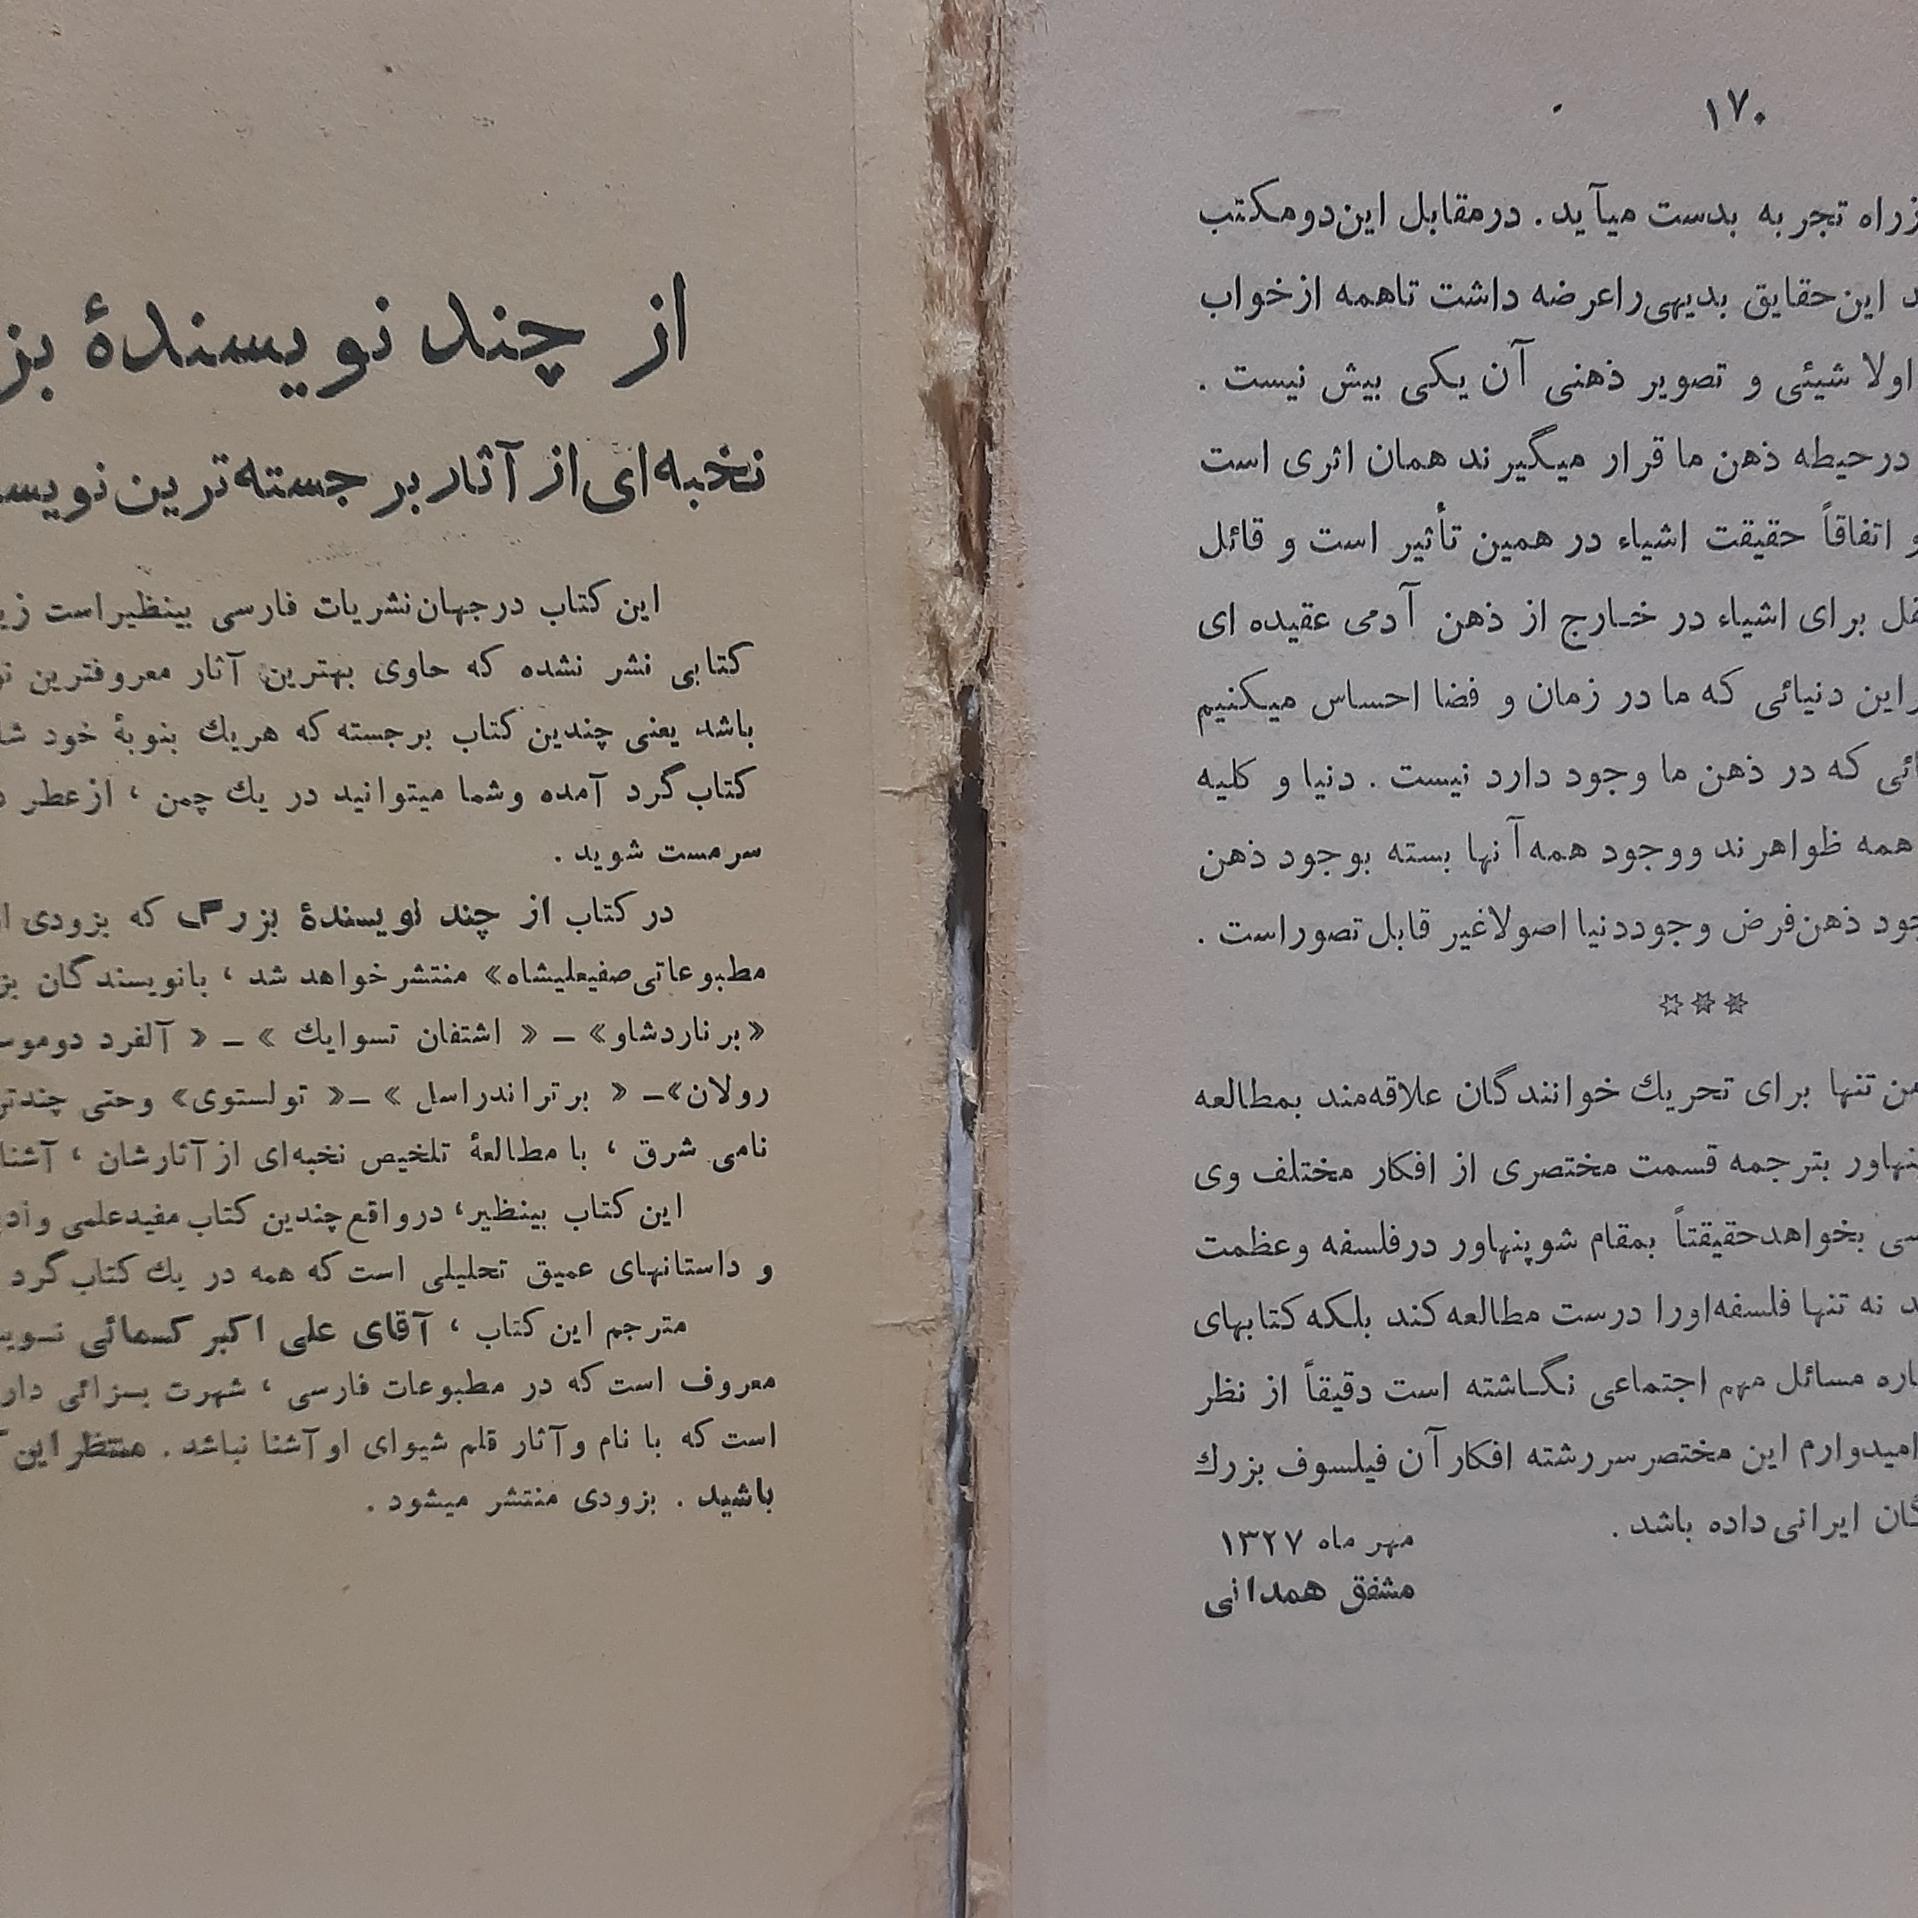 ۱۷۰
تجربه بدست میآید. درمقابل این‌دومکتب
این‌حقایق بدیهی‌راعرضه داشت تاهمه ازخواب
اولا شیئی و تصویر ذهنی آن یکی بیش نیست .
درحیطه ذهن ما قرار میگیرند همان اثری است
و اتفاقاً حقیقت اشیاء در همین تأثیر است و قائل
برای اشیاء در خارج از ذهن آدمی عقیده ای
این دنیائی که ما در زمان و فضا احساس میکنیم
که در ذهن ما وجود دارد نیست . دنیا و کلیه
همه ظواهرند ووجود همه‌آنها بسته بوجود ذهن
ذهن‌فرض وجوددنیا اصولاغیر قابل تصوراست .
✡✡✡
تنها برای تحریك خوانندگان علاقه‌مند بمطالعه
بترجمه قسمت مختصری از افکار مختلف وی
بخواهدحقیقتاً بمقام شوپنهاور درفلسفه وعظمت
نه تنها فلسفه‌اورا درست مطالعه‌کند بلکه‌کتابهای
مسائل مهم اجتماعی نگاشته است دقیقاً از نظر
امیدوارم این مختصرسررشته افکارآن فیلسوف بزرك
ایرانی‌داده باشد .
مهر ماه ۱۳۲۷
مشفق همدانی
از چند نویسندهٔ
نخبه‌ای‌از آثار برجسته‌ترین
این کتاب درجهان‌نشریات فارسی بینظیراست
کتابی نشر نشده که حاوی بهترین آثار معروفترین
باشد یعنی چندین کتاب برجسته که هریك بنوبهٔ خود
کتاب‌گرد آمده وشما میتوانید در یك چمن ، ازعطر
سرمست شوید .
در کتاب از چند نویسندهٔ بزرگ که بزودی
مطبوعاتی‌صفیعلیشاه» منتشرخواهد شد ، بانویسندگان
«برناردشاو» ـ « اشتفان تسوایك » ـ « آلفرد
رولان»ـ « برتراندراسل » ـ« تولستوی» وحتی
نامی شرق ، با مطالعهٔ تلخیص نخبه‌ای از آثارشان ،
این کتاب بینظیر، درواقع‌چندین کتاب مفیدعلمی
و داستانهای عمیق تحلیلی است‌که همه در یك کتاب‌گرد
مترجم این کتاب ، آقای علی اکبر کسمائی
معروف است‌که در مطبوعات فارسی ، شهرت بسزائی
است‌که با نام وآثار قلم شیوای اوآشنا نباشد . منتظر این
باشید . بزودی منتشر میشود .